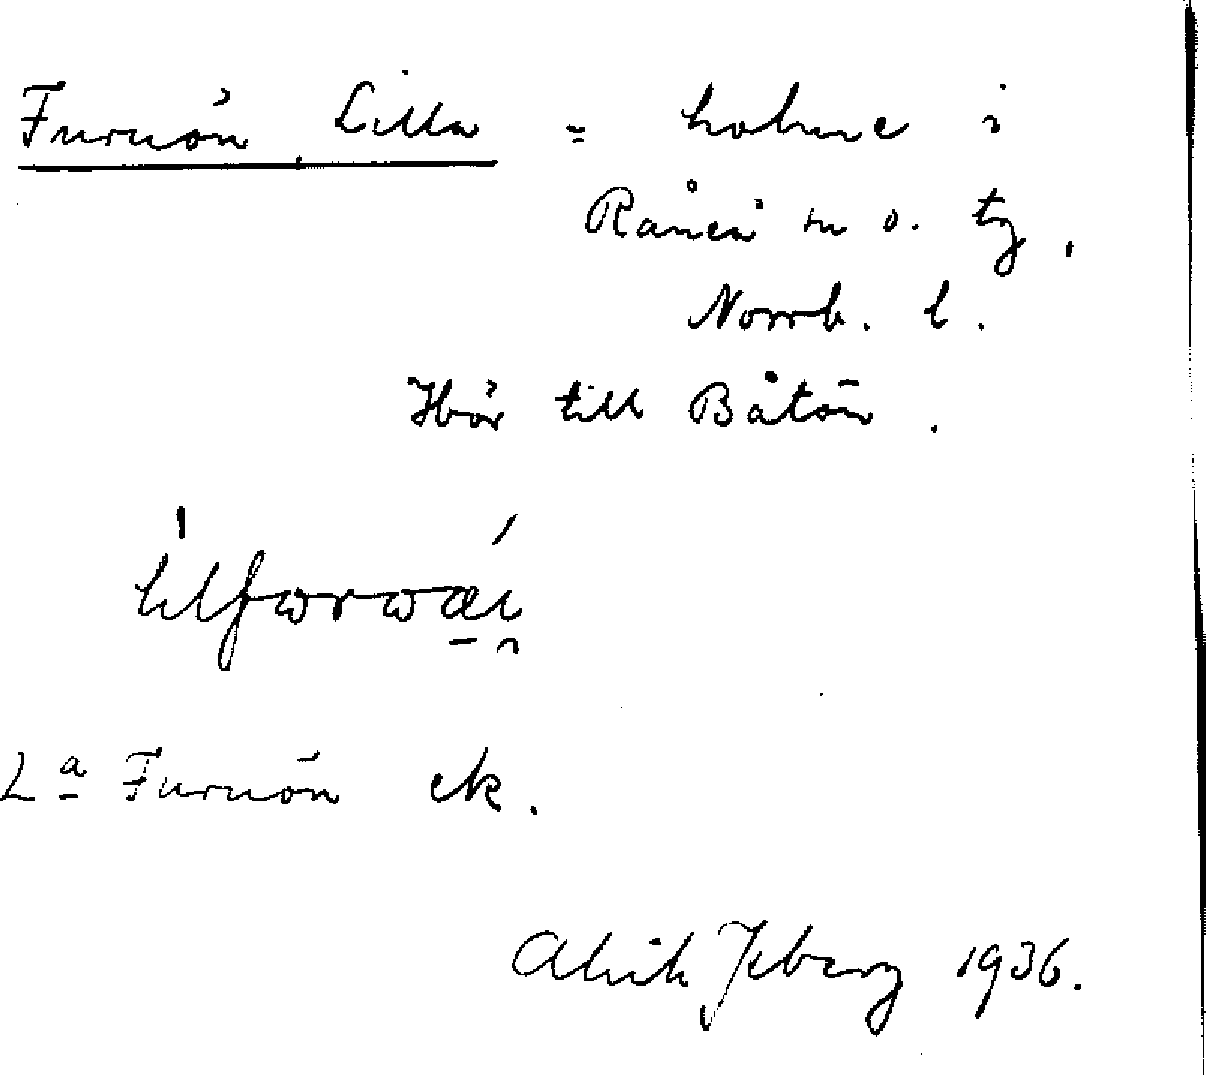 Furuön, Lilla = holme i
Råneå sn o. tg,
Norrb. l.
Hör till Båtön.
Lª Furuön ek.
1936.